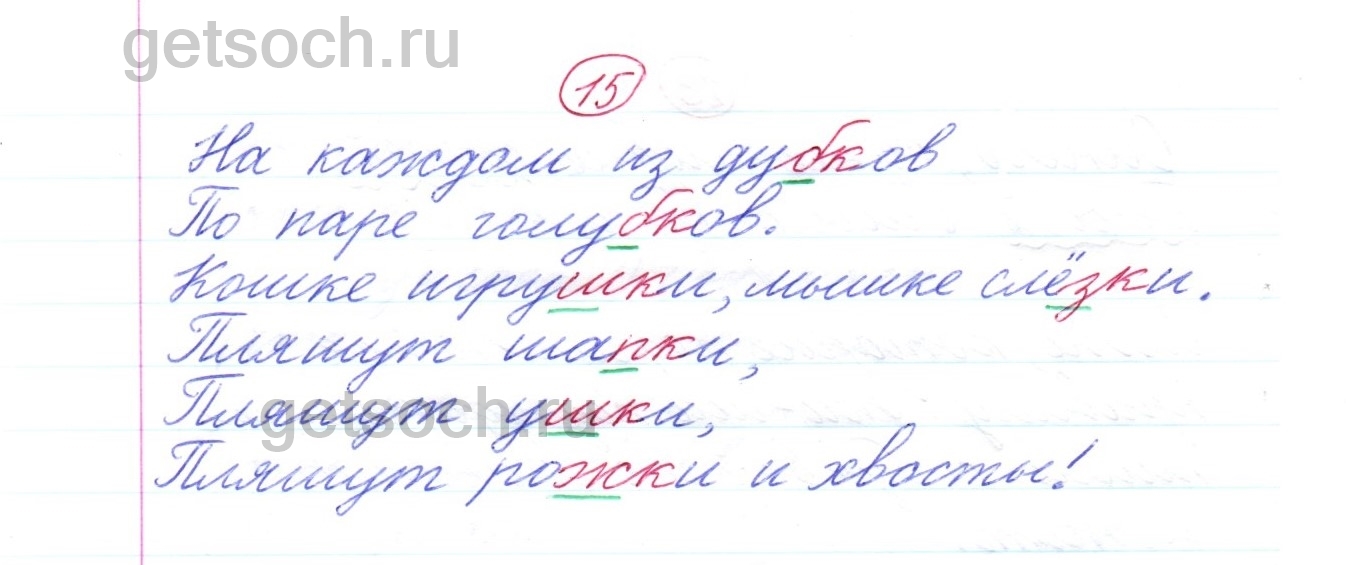 getsoch.ru
15
На каждом из дубков
По паре голубков.
Кошке игрушки, мышке слёзки.
Пляшут шапки,
Пляшут ушки,
getsoch.ru
Пляшут рожки и хвосты!